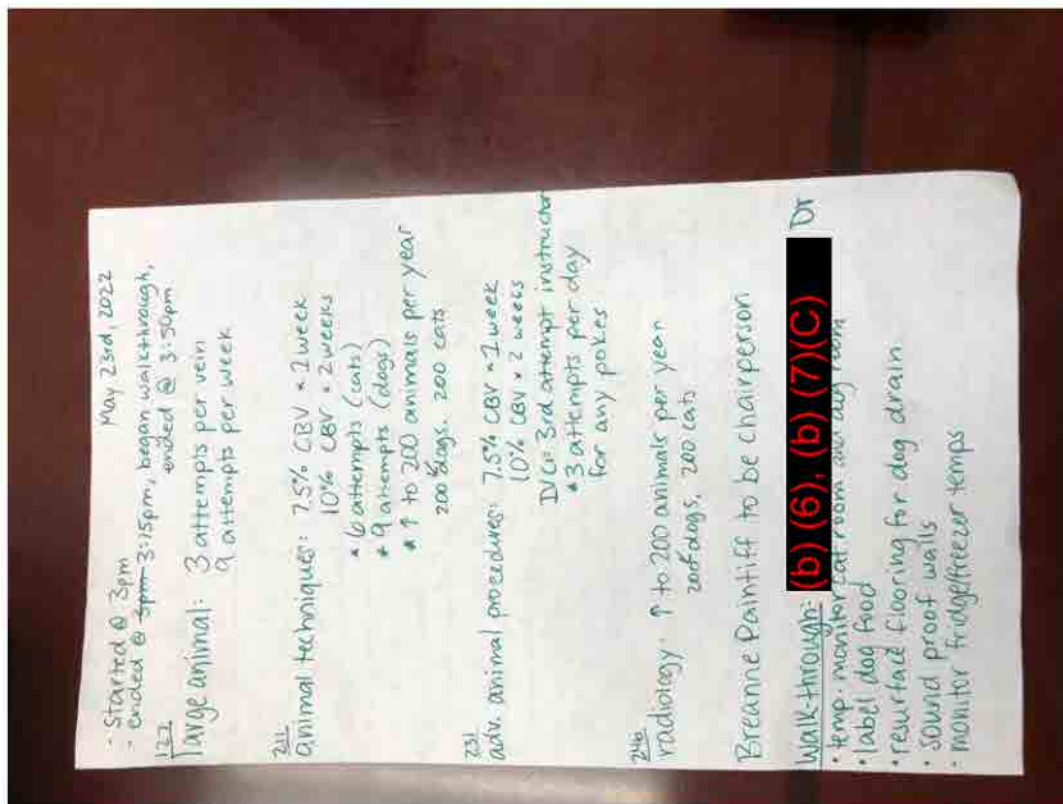 May 23rd, 2022
- Started @ 3pm
- ended @ 3pm 3:15pm, began walkthrough,
ended @ 3:50pm
large animal: 3 attempts per vein
9 attempts per week
211
animal techniques: 7.5% CBV * 1 week
10% CBV * 2 weeks
* 6 attempts (cats)
* 9 attempts (dogs)
* ↑ to 200 animals per year
200 dogs, 200 cats
231
adv. animal procedures: 7.5% CBV * 1 week
10% CBV * 2 weeks
3rd attempt instructor
* 3 attempts per day
for any pokes
246
radiology: ↑ to 200 animals per year
200 dogs, 200 cats
Breanne Paintiff to be chairperson
Walk-through: (b) (6), (b) (7)(C) Dr
• temp. monitor cat room and dog room
• label dog food
• resurface flooring for dog drain
• sound proof walls
• monitor fridge/freezer temps